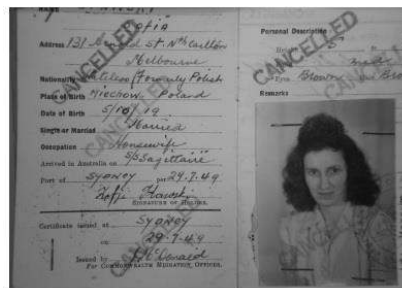 Address 131 Arnold St. Nth Carlton
Melbourne
Nationality Stateless (Formerly Polish)
Place of Birth Miechow, Poland
Date of Birth 5/10/19
Single or Married Married
Occupation Housewife
Arrived in Australia on S/S Sagittaire
Port of SYDNEY per 29.7.49
SIGNATURE OF HOLDER.
Certificate issued at SYDNEY
on 29-7-49
Issued by McDonald
FOR COMMONWEALTH MIGRATION OFFICER.
CANCELLED
CANCELLED
CANCELLED
Personal Description
CANCELLED
Brown
Remarks